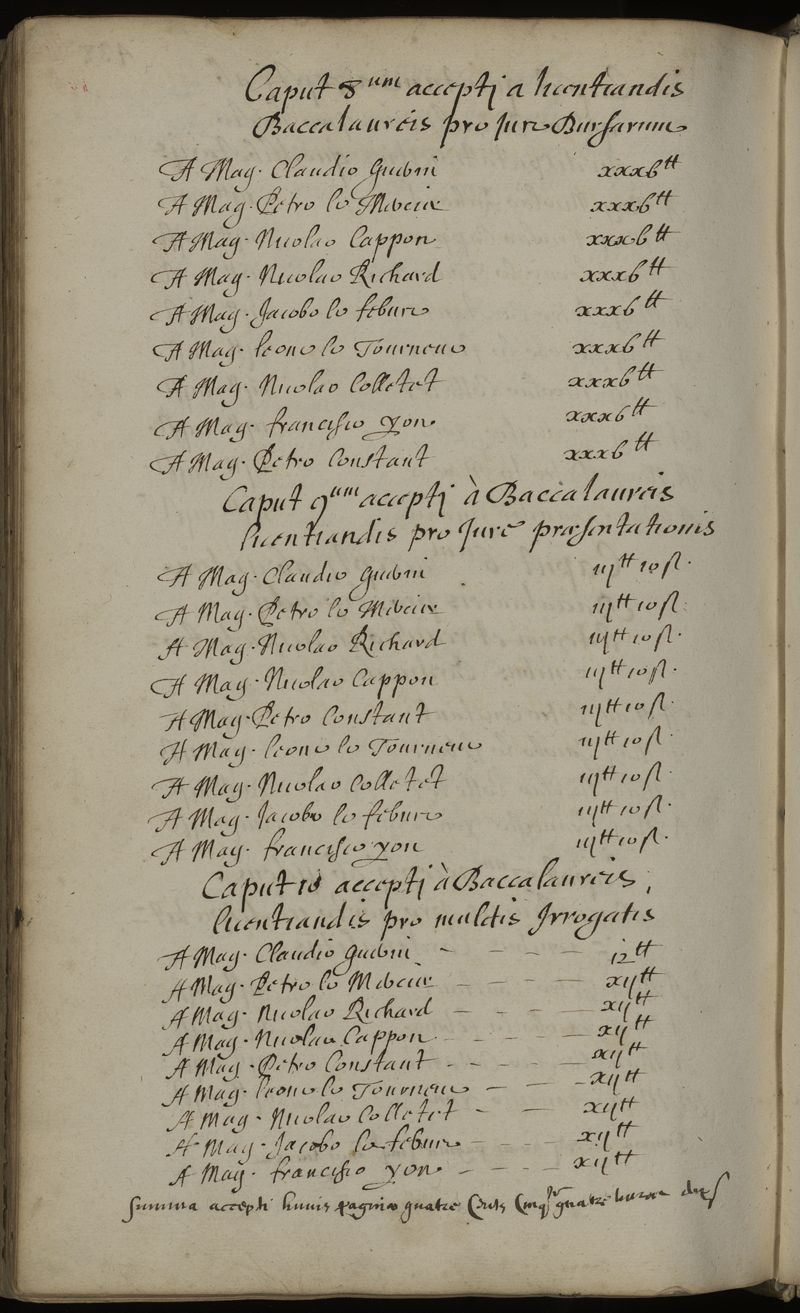 Caput 8um accepti a licentiandis
Baccalaureis pro Jure Bursarum
A Mag. Claudio Guibvin xxxvi tt
A Mag. Petro le Mercier xxxvi tt
A Mag. Nicolao Cappon xxxvi tt
A Mag. Nicolao Richard xxxvi tt
A Mag. Jacobo le febure xxxvi tt
A Mag. leone le Tourneur xxxvi tt
A Mag. Nicolao Colletet xxxvi tt
A Mag. francisco yon xxxvi tt
A Mag. Petro Constant xxxvi tt
Caput 9um accepti à Baccalaureis
licentiandis pro Jure præsentationis
A Mag. Claudio iij tt 10 ſ.
A Mag. Petro le iij tt 10 ſ.
A Mag. Nicolao Richard iij tt 10 ſ.
A Mag. Nicolao Cappon iij tt 10 ſ.
A Mag. Petro Constant iij tt 10 ſ.
A Mag. leone le Tourneur iij tt 10 ſ.
A Mag. Nicolao Colletet iij tt 10 ſ.
A Mag. Jacobo le febure iij tt 10 ſ.
A Mag. francisco yon iij tt 10 ſ.
Caput 10 accepti à Baccalaureis,
licentiandis pro mulctis Irrogatis
A Mag. Claudio 12 tt
A Mag. Petro le xij tt
A Mag. Nicolao Richard xij tt
A Mag. Nicolao Cappon xij tt
A Mag. Petro Constant xij tt
A Mag. leone le Tourneur xij tt
A Mag. Nicolao Colletet xij tt
A Mag. Jacobo le febure xij tt
A Mag. francisco yon xij tt
Summa accepti huius paginæ quatre Cents Cinqte quatre livres dix s